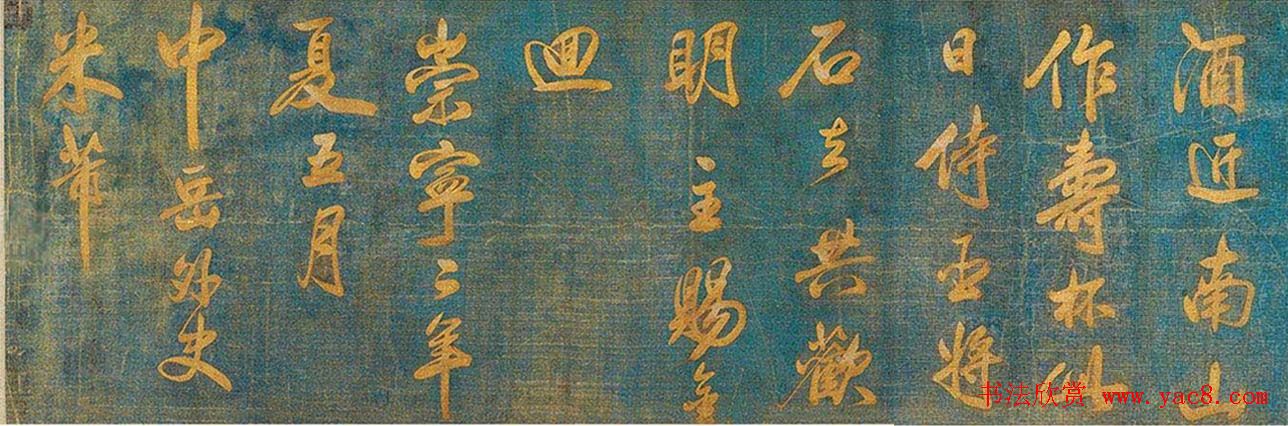 酒近南山
作壽杯此
日侍臣將
石去共歡
明主賜金
迴
崇寧二年
夏五月
中岳外史
米芾
书法欣赏 www.yac8.com